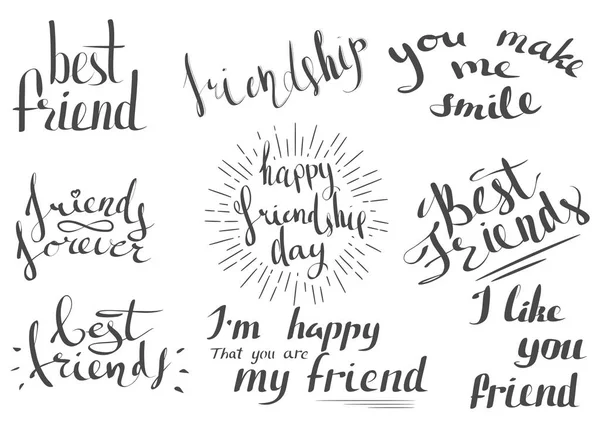 best
friend
friendship
you make
me
smile
friends
forever
happy
friendship
day
Best
Friends
best
friends
I'm happy
That you are
my friend
I like
you
friend